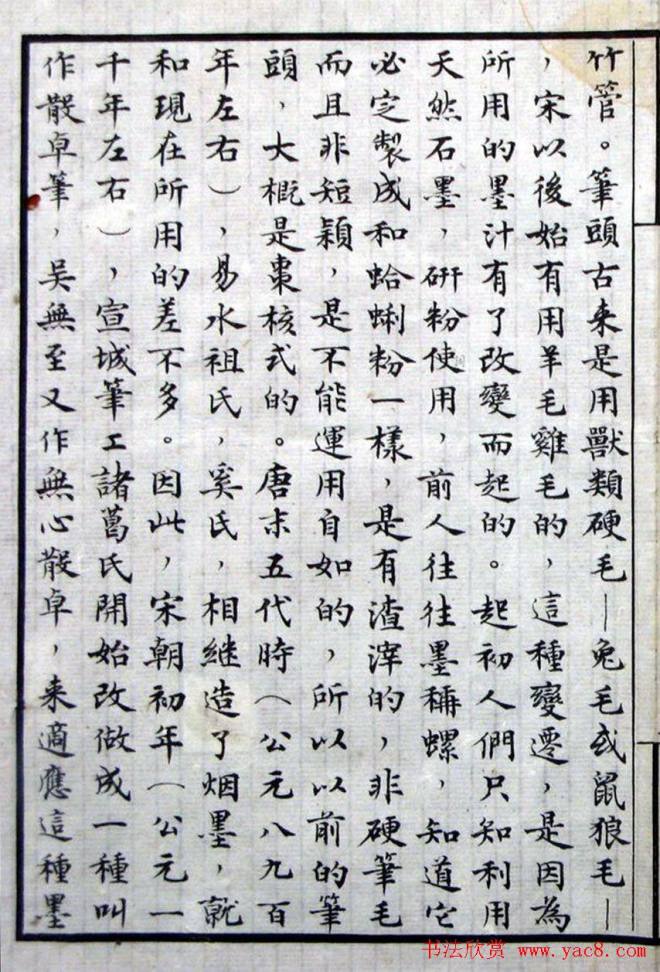 竹管。筆頭古来是用獸類硬毛—兔毛或鼠狼毛—
，宋以後始有用羊毛雞毛的，這種變遷，是因為
所用的墨汁有了改變而起的。起初人們只知利用
天然石墨，研粉使用，前人往往墨稱螺，知道它
必定製成和蛤蜊粉一樣，是有渣滓的，非硬筆毛
而且非短穎，是不能運用自如的，所以以前的筆
頭，大概是棗核式的。唐末五代時（公元八九百
年左右），易水祖氏，奚氏，相継造了烟墨，就
和現在所用的差不多。因此，宋朝初年（公元一
千年左右），宣城筆工諸葛氏開始改做成一種叫
作散卓筆，吳無至又作無心散卓，来適應這種墨
书法欣赏 www.yac8.com